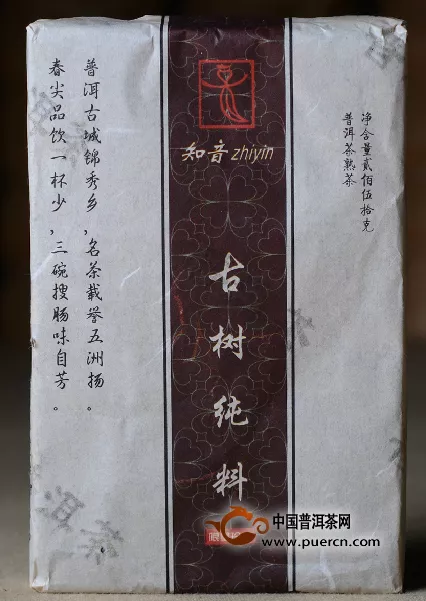 知音 zhiyin
古树纯料
净含量贰佰伍拾克
普洱茶熟茶
普洱古城锦秀乡,名茶载誉五洲扬。
春尖品饮一杯少,三碗搜肠味自芳。
中国普洱茶网
www.puercn.com